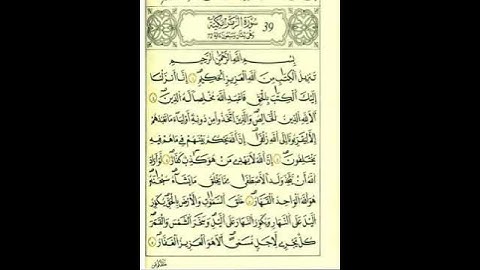 سُورَةُ الزُّمَرِ مَكِّيَّةٌ 39
بِسْمِ اللَّهِ الرَّحْمَٰنِ الرَّحِيمِ
تَنْزِيلُ الْكِتَابِ مِنَ اللَّهِ الْعَزِيزِ الْحَكِيمِ ۝ إِنَّا أَنْزَلْنَا
إِلَيْكَ الْكِتَابَ بِالْحَقِّ فَاعْبُدِ اللَّهَ مُخْلِصًا لَهُ الدِّينَ ۝
أَلَا لِلَّهِ الدِّينُ الْخَالِصُ وَالَّذِينَ اتَّخَذُوا مِنْ دُونِهِ أَوْلِيَاءَ مَا نَعْبُدُهُمْ
إِلَّا لِيُقَرِّبُونَا إِلَى اللَّهِ زُلْفَىٰ إِنَّ اللَّهَ يَحْكُمُ بَيْنَهُمْ فِي مَا هُمْ فِيهِ
يَخْتَلِفُونَ ۝ إِنَّ اللَّهَ لَا يَهْدِي مَنْ هُوَ كَاذِبٌ كَفَّارٌ ۝ لَوْ أَرَادَ
اللَّهُ أَنْ يَتَّخِذَ وَلَدًا لَاصْطَفَىٰ مِمَّا يَخْلُقُ مَا يَشَاءُ سُبْحَانَهُ
هُوَ اللَّهُ الْوَاحِدُ الْقَهَّارُ ۝ خَلَقَ السَّمَٰوَاتِ وَالْأَرْضَ بِالْحَقِّ يُكَوِّرُ
اللَّيْلَ عَلَى النَّهَارِ وَيُكَوِّرُ النَّهَارَ عَلَى اللَّيْلِ وَسَخَّرَ الشَّمْسَ وَالْقَمَرَ
كُلٌّ يَجْرِي لِأَجَلٍ مُسَمًّى أَلَا هُوَ الْعَزِيزُ الْغَفَّارُ ۝